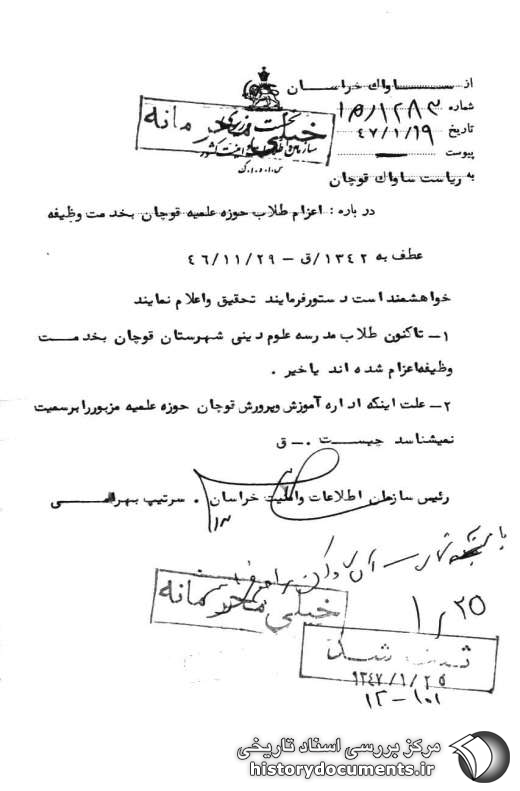 از ساواک خراسان
شماره ۱۵/۱۲۸۳
تاریخ ۴۷/۱/۱۹
پیوست
خیلی محرمانه
نخست وزیری
سازمان اطلاعات و امنیت کشور
س.ا.و.ا.ک
به ریاست ساواک قوچان
درباره: اعزام طلاب حوزه علمیه قوچان بخدمت وظیفه
عطف به ۱۳۴۲/ق - ۴۶/۱۱/۲۹
خواهشمند است دستورفرمایند تحقیق واعلام نمایند
۱- تاکنون طلاب مدرسه علوم دینی شهرستان قوچان بخدمت
وظیفه اعزام شده اند یاخیر .
۲- علت اینکه اداره آموزش وپرورش قوچان حوزه علمیه مزبوررابرسمیت
نمیشناسد چیست .- ق
رئیس سازمان اطلاعات وامنیت خراسان . سرتیپ بهرامی
خیلی محرمانه
۱/۲۵
ثبت شد
۱۳۴۷/۱/۲۵
۱۲-۱۰۱
مرکز بررسی اسناد تاریخی
historydocuments.ir